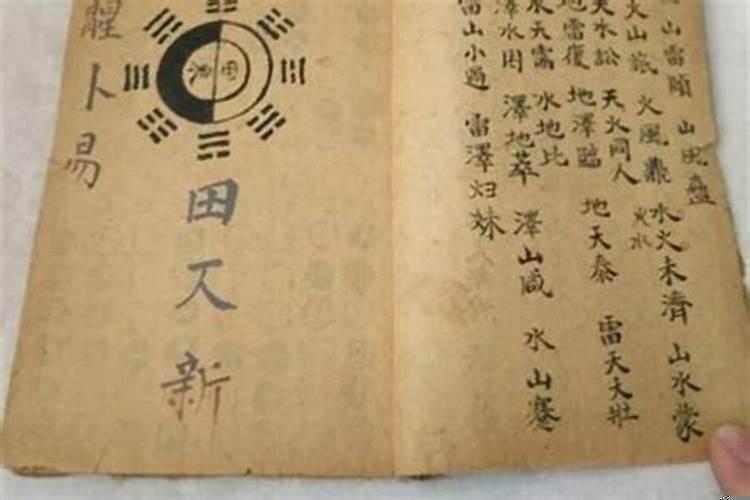 山雷頤 山風蠱
水火未濟 山水蒙
火山旅 火風鼎 火水
天水訟 天火同人
地雷復 地澤臨 地天泰 雷天大壯
水天需 水地比
澤水困 澤地萃 澤山咸 水山蹇
雷山小過 雷澤归妹
田
新
卜易